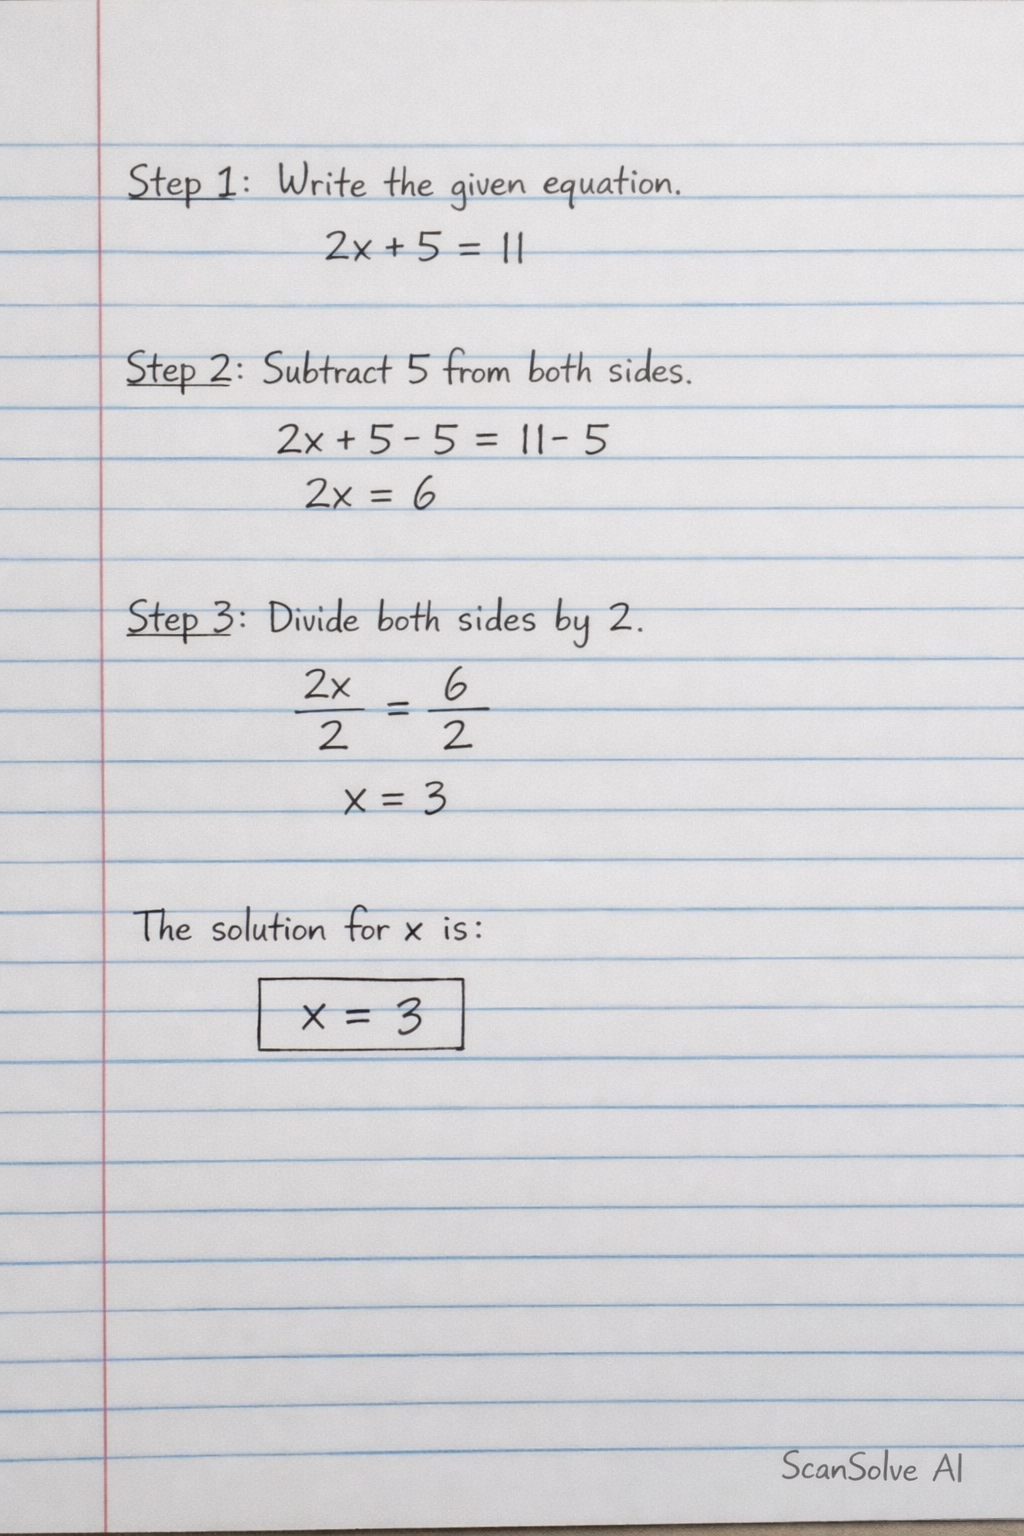 Step 1: Write the given equation.
2x + 5 = 11
Step 2: Subtract 5 from both sides.
2x + 5 - 5 = 11 - 5
2x = 6
Step 3: Divide both sides by 2.
2x/2 = 6/2
x = 3
The solution for x is:
x = 3
ScanSolve AI